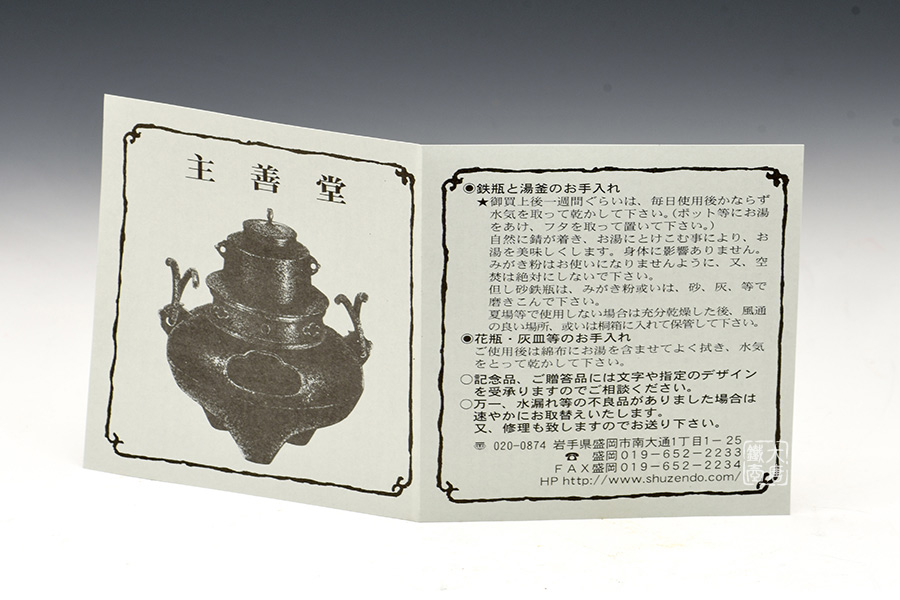 主善堂
◉鉄瓶と湯釜のお手入れ
★御買上後一週間ぐらいは、毎日使用後かならず
水気を取って乾かして下さい。(ポット等にお湯
をあけ、フタを取って置いて下さい。)
自然に錆が着き、お湯にとけこむ事により、お
湯を美味しくします。身体に影響ありません。
みがき粉はお使いになりませんように、又、空
焚は絶対にしないで下さい。
但し砂鉄瓶は、みがき粉或いは、砂、灰、等で
磨きこんで下さい。
夏場等で使用しない場合は充分乾燥した後、風通
の良い場所、或いは桐箱に入れて保管して下さい。
◉花瓶・灰皿等のお手入れ
ご使用後は綿布にお湯を含ませてよく拭き、水気
をとって乾かして下さい。
○記念品、ご贈答品には文字や指定のデザイン
を受承りますのでご相談ください。
○万一、水漏れ等の不良品がありました場合は
速やかにお取替えいたします。
又、修理も致しますのでお送り下さい。
〠 020-0874 岩手県盛岡市南大通1丁目1-25
☎ 盛岡019-652-2233
FAX盛岡019-652-2234
HP http://www.shuzendo.com/